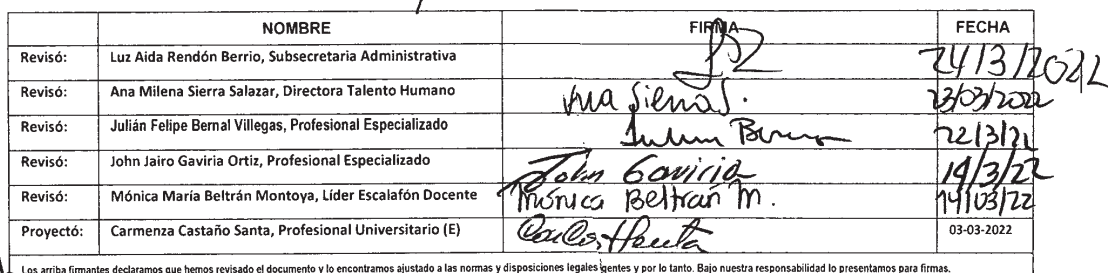 NOMBRE FIRMA FECHA
Revisó: Luz Aida Rendón Berrio, Subsecretaria Administrativa 24/3/2022
Revisó: Ana Milena Sierra Salazar, Directora Talento Humano Ana Sierra S. 23/03/2022
Revisó: Julián Felipe Bernal Villegas, Profesional Especializado 22/3/22
Revisó: John Jairo Gaviria Ortiz, Profesional Especializado John Gaviria 14/3/22
Revisó: Mónica María Beltrán Montoya, Líder Escalafón Docente Mónica Beltrán M. 14/03/22
Proyectó: Carmenza Castaño Santa, Profesional Universitario (E) 03-03-2022
Los arriba firmantes declaramos que hemos revisado el documento y lo encontramos ajustado a las normas y disposiciones legales gentes y por lo tanto. Bajo nuestra responsabilidad lo presentamos para firmas.